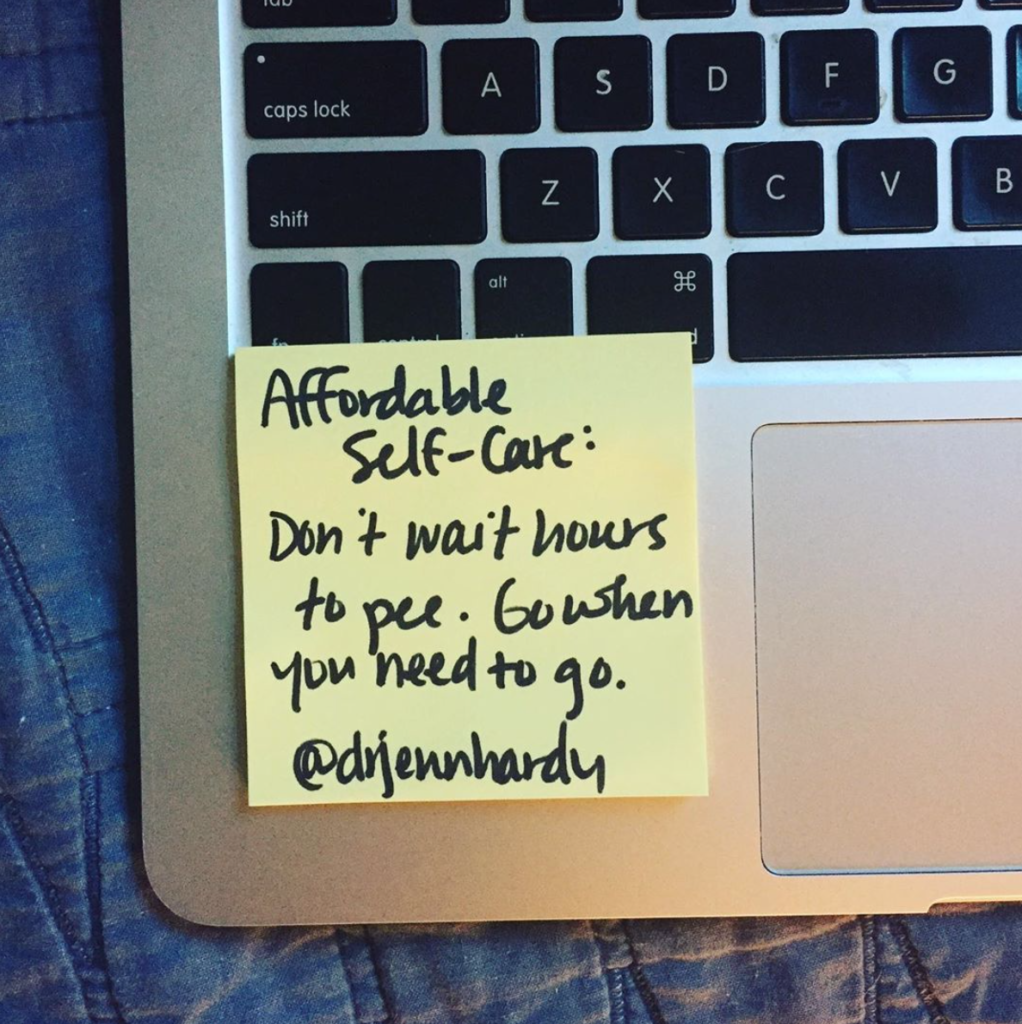 tab
caps lock A S D F G
shift Z X C V B
alt ⌘
fn control
Affordable
Self-Care:
Don't wait hours
to pee. Go when
you need to go.
@drjennhardy